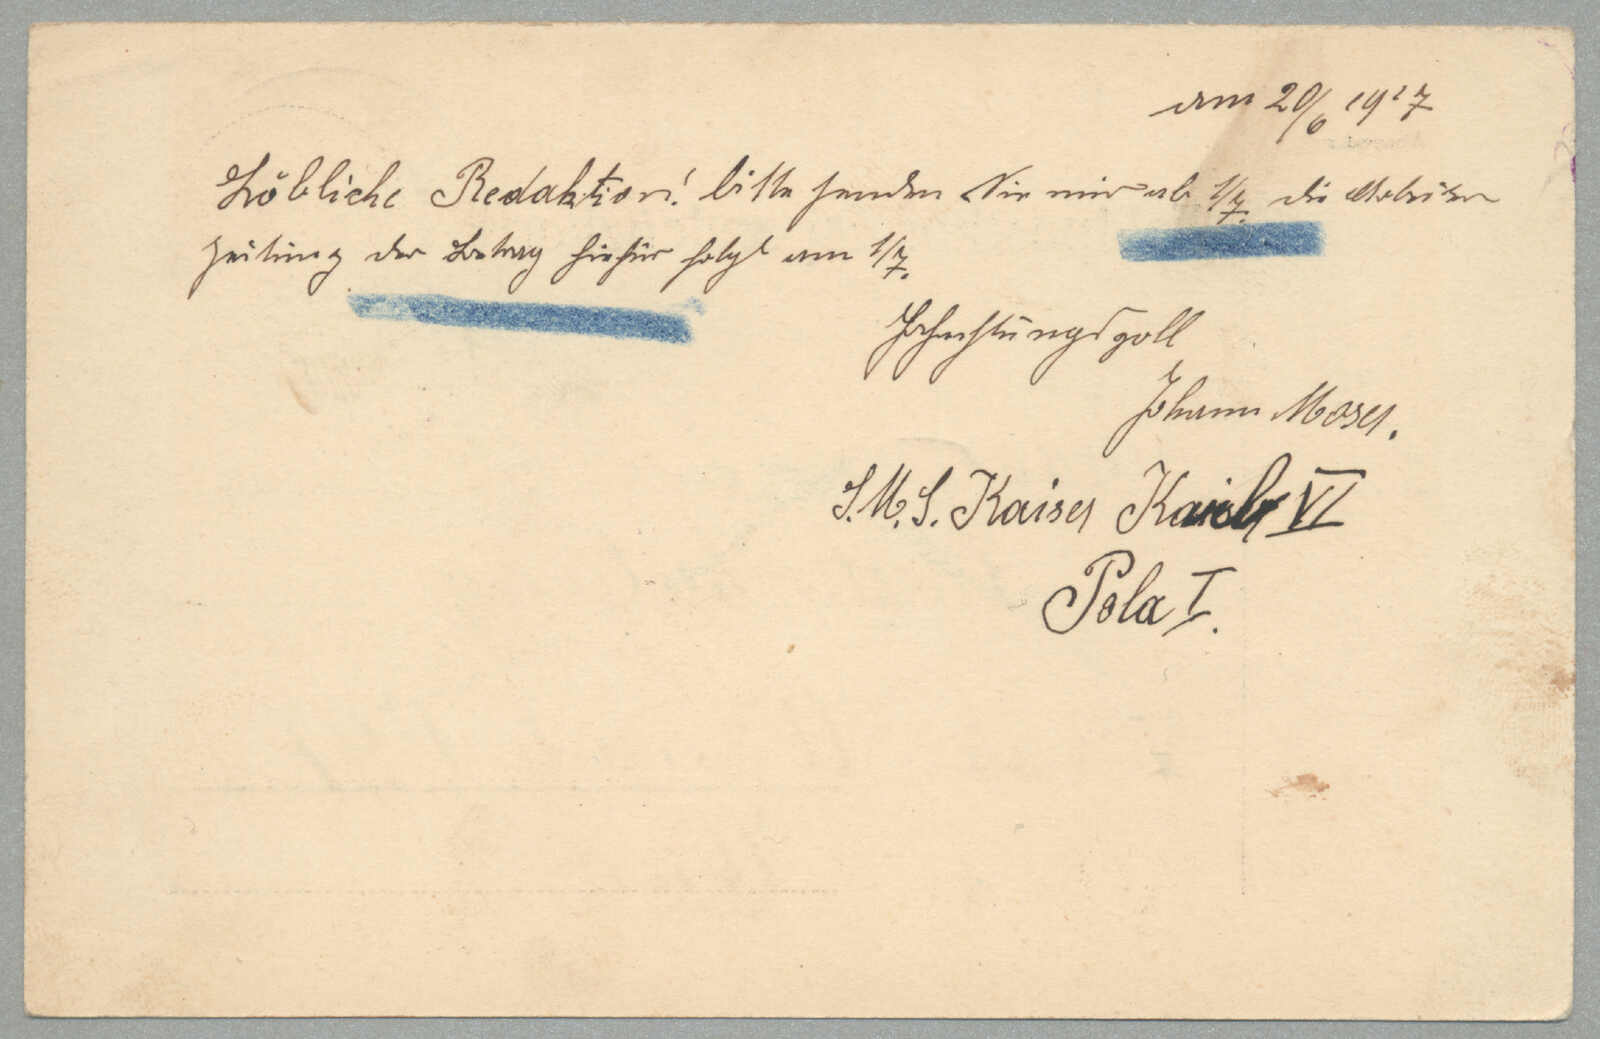 am 20/6 1917
Löbliche Redaktion! bitte senden Sie mir ab 1/7. die Arbeiter
zeitung der Betrag hiefür folgt am 1/7.
Hochachtungsvoll
Johann Moser.
S.M.S. Kaiser Karl VI
Pola I.